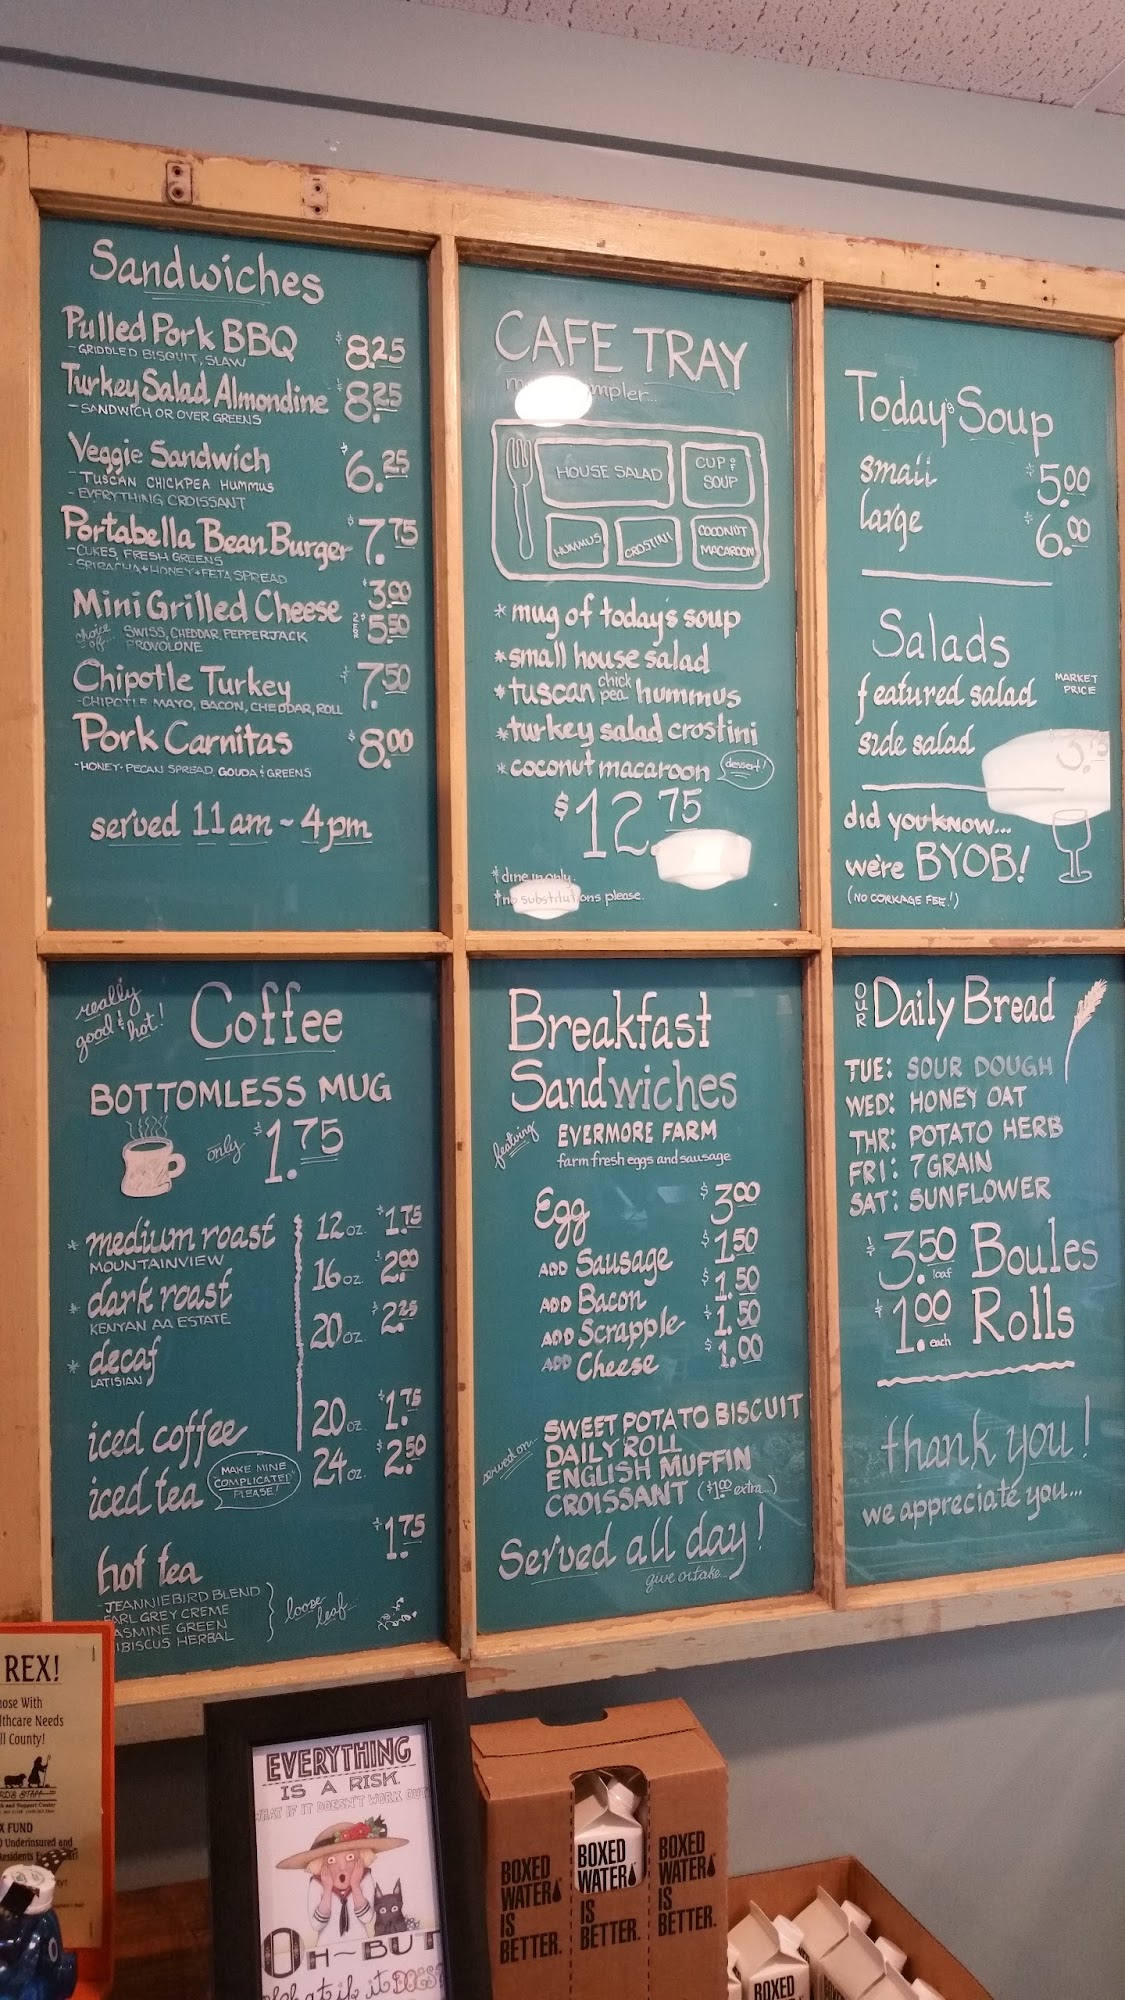 Sandwiches
Pulled Pork BBQ $8.25
- GRIDDLED BISQUIT, SLAW
Turkey Salad Almondine $8.25
- SANDWICH OR OVER GREENS
Veggie Sandwich $6.25
- TUSCAN CHICKPEA HUMMUS
- EVERYTHING CROISSANT
Portabella Bean Burger $7.75
- CUKES, FRESH GREENS
- SRIRACHA + HONEY + FETA SPREAD
Mini Grilled Cheese $3.00
2 FER $5.50
choice of... SWISS, CHEDDAR, PEPPERJACK
PROVOLONE
Chipotle Turkey $7.50
- CHIPOTLE MAYO, BACON, CHEDDAR, ROLL
Pork Carnitas $8.00
- HONEY-PECAN SPREAD, GOUDA & GREENS
served 11 am ~ 4 pm
CAFE TRAY
HOUSE SALAD
CUP of
SOUP
HUMMUS
CROSTINI
COCONUT
MACAROON
* mug of today's soup
* small house salad
* tuscan chick pea hummus
* turkey salad crostini
* coconut macaroon dessert!
$12.75
* dine in only.
* no substitutions please.
Today's Soup
small $5.00
large $6.00
Salads
featured salad MARKET PRICE
side salad
did you know...
we're BYOB!
(NO CORKAGE FEE!)
really good & hot!
Coffee
BOTTOMLESS MUG
only $1.75
* medium roast 12 oz. $1.75
MOUNTAINVIEW
* dark roast 16 oz. $2.00
KENYAN AA ESTATE
20 oz. $2.25
* decaf
LATISIAN
iced coffee 20 oz. $1.75
iced tea 24 oz. $2.50
MAKE MINE
COMPLICATED
PLEASE!
hot tea $1.75
- JEANNIEBIRD BLEND
EARL GREY CREME
JASMINE GREEN
HIBISCUS HERBAL
loose leaf...
Breakfast
Sandwiches
featuring EVERMORE FARM
farm fresh eggs and sausage
Egg $3.00
ADD Sausage $1.50
ADD Bacon $1.50
ADD Scrapple $1.50
ADD Cheese $1.00
served on... SWEET POTATO BISCUIT
DAILY ROLL
ENGLISH MUFFIN
CROISSANT ($1.00 extra...)
Served all day!
give or take...
OUR Daily Bread
TUE: SOUR DOUGH
WED: HONEY OAT
THR: POTATO HERB
FRI: 7 GRAIN
SAT: SUNFLOWER
$3.50 loaf Boules
$1.00 each Rolls
thank you!
we appreciate you...
REX!
With
Needs
County!
FUND
Underinsured and
EVERYTHING
IS A RISK.
WHAT IF IT DOESN'T WORK OUT
OH~BUT
what if it DOES
BOXED
WATER
IS
BETTER.
BOXED
WATER
IS
BETTER.
BOXED
WATER
IS
BETTER.
BOXED
WATER